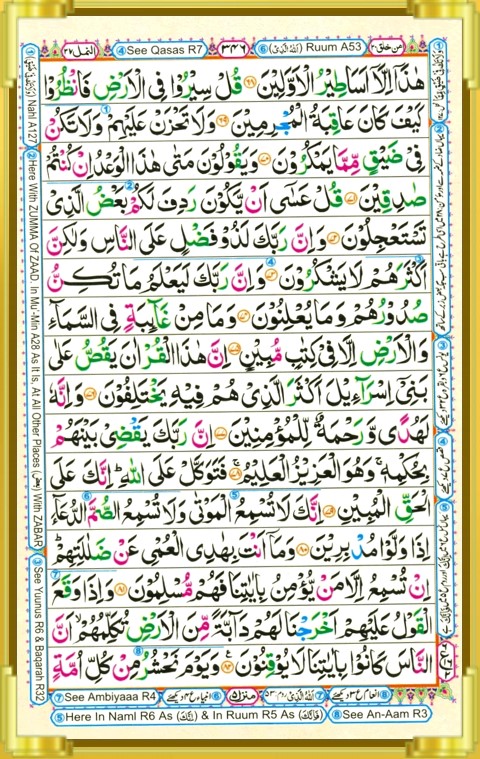 النمل ۲۷ ④ See Qasas R7 ۳۴۶ ⑥ (اَللّٰهُ الَّذِیْ) Ruum A53 امن خلق ۲۰
هٰذَاۤ اِلَّاۤ اَسَاطِیْرُ الْاَوَّلِیْنَ قُلْ سِیْرُوْا فِی الْاَرْضِ فَانْظُرُوْا
كَیْفَ كَانَ عَاقِبَةُ الْمُجْرِمِیْنَ وَلَا تَحْزَنْ عَلَیْهِمْ وَلَا تَكُنْ
فِیْ ضَیْقٍ مِّمَّا یَمْكُرُوْنَ وَیَقُوْلُوْنَ مَتٰی هٰذَا الْوَعْدُ اِنْ كُنْتُمْ
صٰدِقِیْنَ قُلْ عَسٰۤی اَنْ یَّكُوْنَ رَدِفَ لَكُمْ بَعْضُ الَّذِیْ
تَسْتَعْجِلُوْنَ وَاِنَّ رَبَّكَ لَذُوْ فَضْلٍ عَلَی النَّاسِ وَلٰكِنَّ
اَكْثَرَهُمْ لَا یَشْكُرُوْنَ وَاِنَّ رَبَّكَ لَیَعْلَمُ مَا تُكِنُّ
صُدُوْرُهُمْ وَمَا یُعْلِنُوْنَ وَمَا مِنْ غَآىِٕبَةٍ فِی السَّمَآءِ
وَالْاَرْضِ اِلَّا فِیْ كِتٰبٍ مُّبِیْنٍ اِنَّ هٰذَا الْقُرْاٰنَ یَقُصُّ عَلٰی
بَنِیْۤ اِسْرَآءِیْلَ اَكْثَرَ الَّذِیْ هُمْ فِیْهِ یَخْتَلِفُوْنَ وَاِنَّهٗ
لَهُدًی وَّرَحْمَةٌ لِّلْمُؤْمِنِیْنَ اِنَّ رَبَّكَ یَقْضِیْ بَیْنَهُمْ
بِحُكْمِهٖ وَهُوَ الْعَزِیْزُ الْعَلِیْمُ فَتَوَكَّلْ عَلَی اللّٰهِ اِنَّكَ عَلَی
الْحَقِّ الْمُبِیْنِ اِنَّكَ لَا تُسْمِعُ الْمَوْتٰی وَلَا تُسْمِعُ الصُّمَّ الدُّعَآءَ
اِذَا وَلَّوْا مُدْبِرِیْنَ وَمَاۤ اَنْتَ بِهٰدِی الْعُمْیِ عَنْ ضَلٰلَتِهِمْ
اِنْ تُسْمِعُ اِلَّا مَنْ یُّؤْمِنُ بِاٰیٰتِنَا فَهُمْ مُّسْلِمُوْنَ وَاِذَا وَقَعَ
الْقَوْلُ عَلَیْهِمْ اَخْرَجْنَا لَهُمْ دَآبَّةً مِّنَ الْاَرْضِ تُكَلِّمُهُمْ اَنَّ
النَّاسَ كَانُوْا بِاٰیٰتِنَا لَا یُوْقِنُوْنَ وَیَوْمَ نَحْشُرُ مِنْ كُلِّ اُمَّةٍ
Nahl A127 ② Here With ZUMMA Of ZAAD. In Mu'-Min A28 As It Is, At All Other Places (بعض) With ZABAR ③ See Yuunus R6 & Baqarah R32
⑦ See Ambiyaaa R4 ⑥ انبیاء ع ۴ دیکھئے منزل ۵ ⑦ (اللّٰهُ الَّذِیْ) روم ۵۳ ⑧ انعام ع ۳ دیکھئے
⑤ Here In Naml R6 As (اِنَّكَ) & In Ruum R5 As (فَاِنَّكَ) ⑧ See An-Aam R3